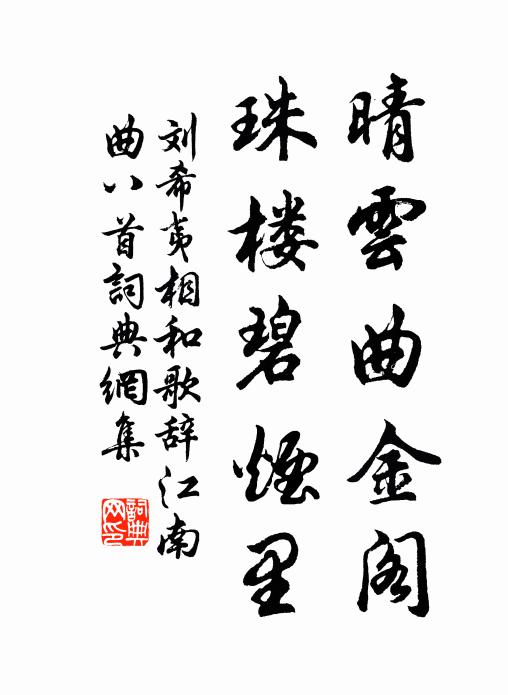 晴雲曲金阁
珠楼碧煙里
刘希夷相和歌辞江南
曲八首詞典網集
詞典
网印